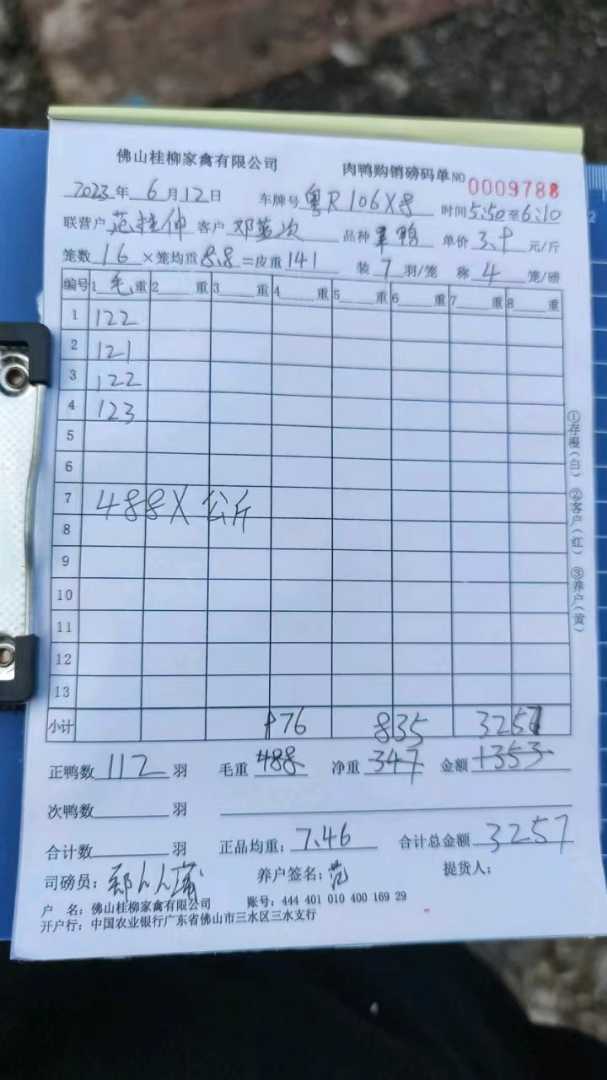 佛山桂柳家禽有限公司 肉鸭购销磅码单 NO 0009788
2023年 6月12日 车牌号 粤R106X8 时间5:50至6:10
联营户 范桂伸 客户 品种 鸭 单价 3.9 元/斤
笼数 16 ×笼均重8.8=皮重141 装 7 羽/笼 称 4 笼/磅
编号 1 毛重 2 重 3 重 4 重 5 重 6 重 7 重 8 重
1 122
2 121
3 122
4 123
5
6
7 488X公斤
8
9
10
11
12
13
小计 876 835 3257
正鸭数 112 羽 毛重 488 净重 347 金额 1353
次鸭数 羽
合计数 羽 正品均重: 7.46 合计总金额 3257
司磅员: 养户签名: 范 提货人:
户 名: 佛山桂柳家禽有限公司 账号: 444 401 010 400 169 29
开户行: 中国农业银行广东省佛山市三水区三水支行
①存根(白) ②客户(红) ③养户(黄)